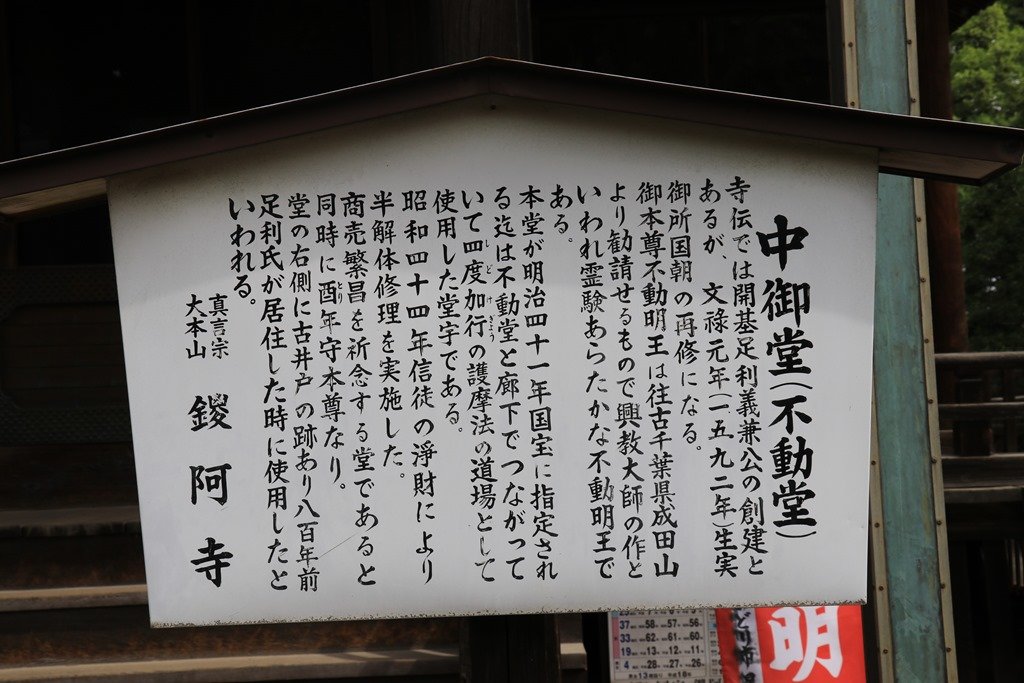 中御堂（不動堂）
寺伝では開基足利義兼公の創建と
あるが、文禄元年（一五九二年）生実
御所国朝の再修になる。
御本尊不動明王は往古千葉県成田山
より勧請せるもので興教大師の作と
いわれ霊験あらたかな不動明王で
ある。
本堂が明治四十一年国宝に指定され
る迄は不動堂と廊下でつながって
いて四度加行の護摩法の道場として
しど
けぎょう
使用した堂宇である。
昭和四十四年信徒の浄財により
半解体修理を実施した。
商売繁昌を祈念する堂であると
同時に酉年守本尊なり。
とり
堂の右側に古井戸の跡あり八百年前
足利氏が居住した時に使用したと
いわれる。
真言宗
大本山
鑁阿寺
37 58 57 56
33 62 61 60
19 13 12 11
4 28 27 26
明